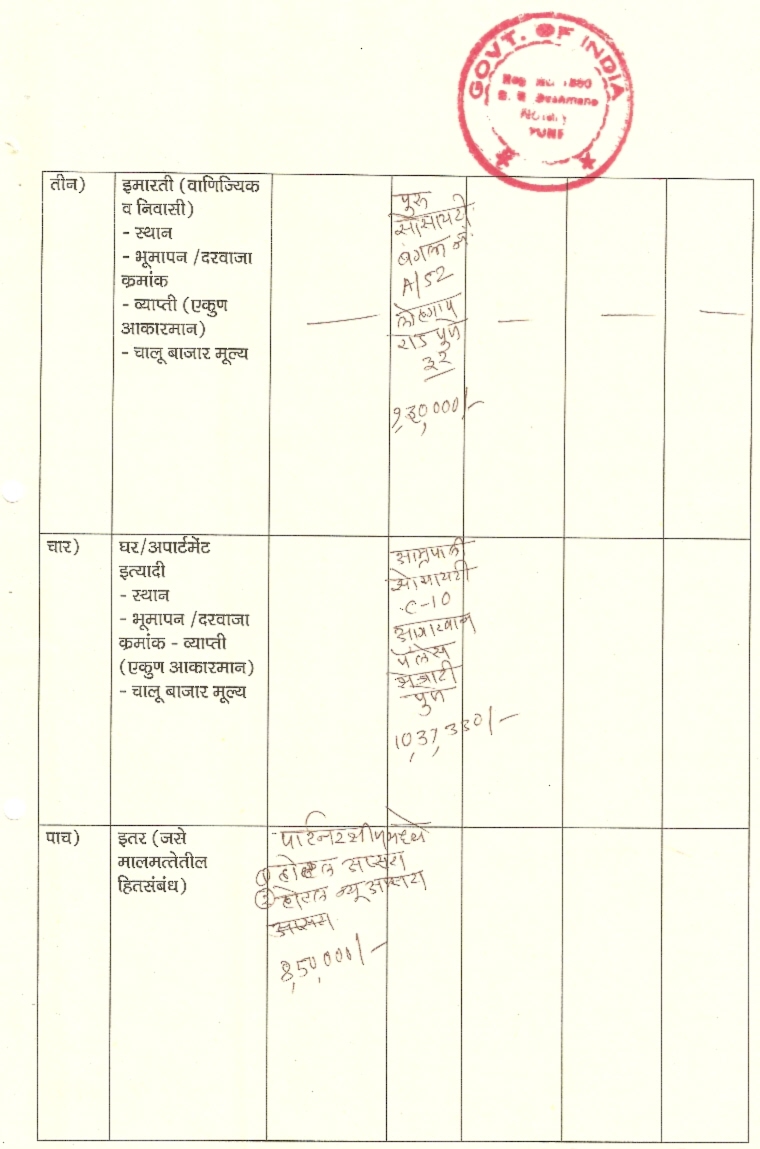 GOVT. OF INDIA
PUNE
तीन)
इमारती (वाणिज्यिक
व निवासी)
- स्थान
- भूमापन /दरवाजा
क्रमांक
- व्याप्ती (एकुण
आकारमान)
- चालू बाजार मूल्य
पुरु
सोसायटी
बंगला नं.
A/52
लोहगाव
रोड पुणे
३२
चार)
घर/अपार्टमेंट
इत्यादी
- स्थान
- भूमापन /दरवाजा
क्रमांक - व्याप्ती
(एकुण आकारमान)
- चालू बाजार मूल्य
आम्रपाली
सोसायटी
C-10
पॅलेस
पुणे
10,37,330/-
पाच)
इतर (जसे
मालमत्तेतील
हितसंबंध)
पार्टनरशीपमध्ये
① हॉटेल अप्सरा
② हॉटेल न्यू अप्सरा